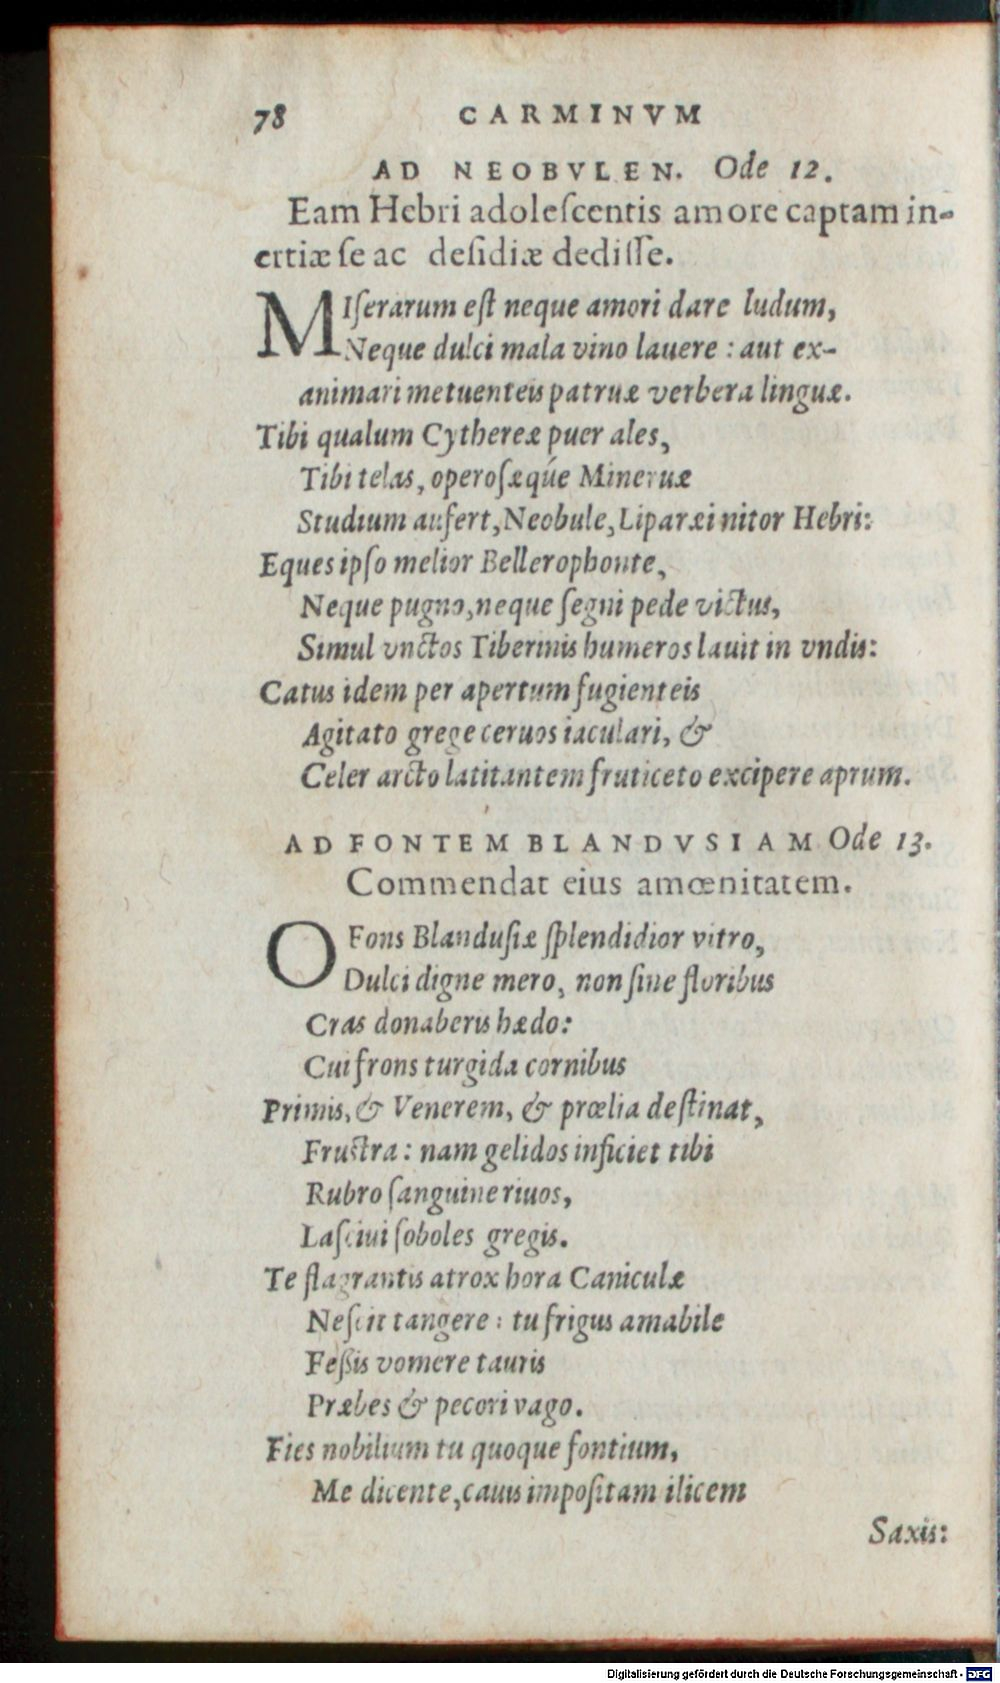 78 CARMINVM
AD NEOBVLEN. Ode 12.
Eam Hebri adoleſcentis amore captam in-
ertiæ ſe ac deſidiæ dediſſe.
MIſerarum eſt neque amori dare ludum,
Neque dulci mala vino lauere : aut ex-
animari metuenteis patruæ verbera linguæ.
Tibi qualum Cythereæ puer ales,
Tibi telas, operoſæqúe Mineruæ
Studium aufert, Neobule, Liparæi nitor Hebri:
Eques ipſo melior Bellerophonte,
Neque pugno, neque ſegni pede victus,
Simul vnctos Tiberinis humeros lauit in vndis:
Catus idem per apertum fugienteis
Agitato grege ceruos iaculari, &
Celer arcto latitantem fruticeto excipere aprum.
AD FONTEM BLANDVSIAM Ode 13.
Commendat eius amœnitatem.
O Fons Blanduſiæ ſplendidior vitro,
Dulci digne mero, non ſine floribus
Cras donaberis hædo:
Cui frons turgida cornibus
Primis, & Venerem, & prœlia deſtinat,
Fruſtra : nam gelidos inficiet tibi
Rubro ſanguine riuos,
Laſciui ſoboles gregis.
Te flagrantis atrox hora Caniculæ
Neſcit tangere : tu frigus amabile
Feßis vomere tauris
Præbes & pecori vago.
Fies nobilium tu quoque fontium,
Me dicente, cauis impoſitam ilicem
Saxis:
Digitalisierung gefördert durch die Deutsche Forschungsgemeinschaft - DFG